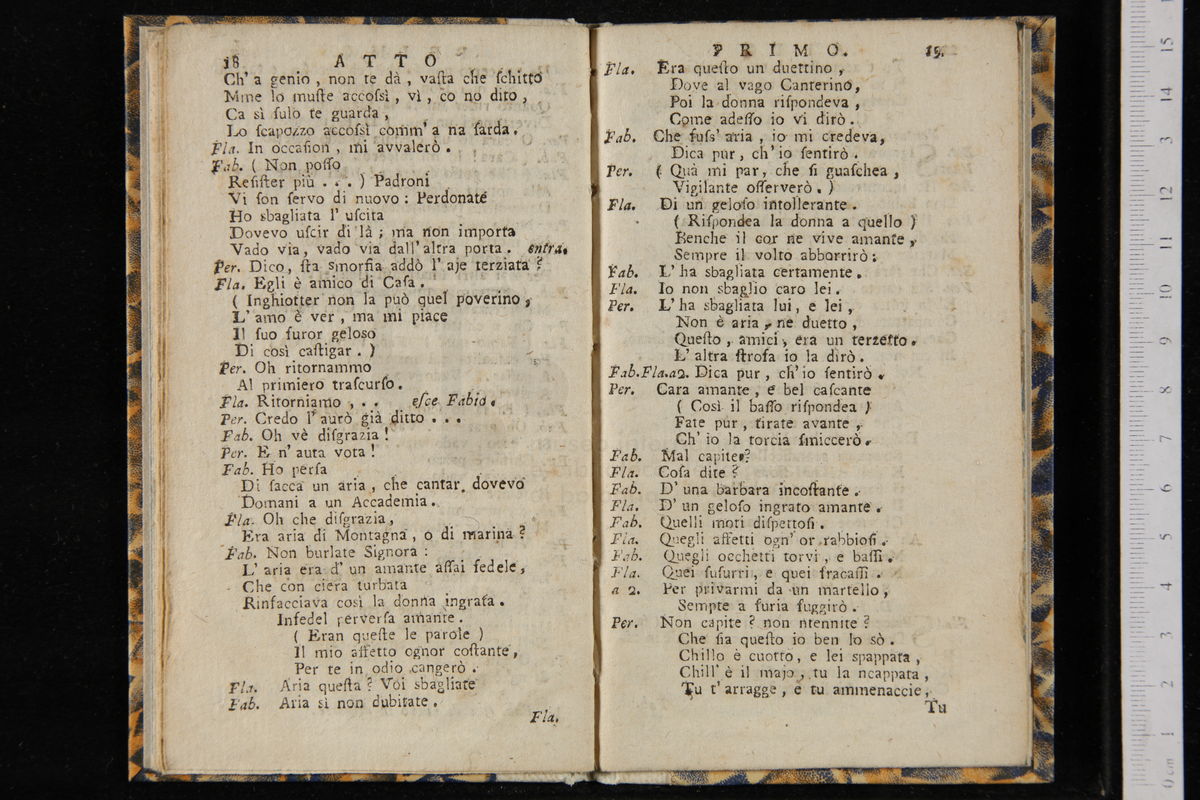 18 ATTO
Ch' a genio, non te dà, vaſta che ſchitto
Mme lo muſte accoſsì, vì, co no dito,
Ca sì ſulo te guarda,
Lo ſcapozzo accoſsì comm' a na ſarda.
Fla. In occaſion, mi avvalerò.
Fab. ( Non poſſo
Reſiſter più . . . ) Padroni
Vi ſon ſervo di nuovo: Perdonate
Ho sbagliata l' uſcita
Dovevo uſcir di là; ma non importa
Vado via, vado via dall' altra porta. entra.
Per. Dico, ſta smorfia addò l' aje terziata?
Fla. Egli è amico di Caſa.
( Inghiotter non la può quel poverino,
L' amo è ver, ma mi piace
Il ſuo furor geloso
Di così caſtigar. )
Per. Oh ritornammo
Al primiero traſcurſo.
Fla. Ritorniamo . . . eſce Fabio.
Per. Credo l' aurò già ditto . . .
Fab. Oh vè diſgrazia!
Per. E n' auta vota!
Fab. Ho perſa
Di ſacca un aria, che cantar dovevo
Domani a un Accademia.
Fla. Oh che diſgrazia,
Era aria di Montagna, o di marina?
Fab. Non burlate Signora:
L' aria era d' un amante aſſai fedele,
Che con ciera turbata
Rinfacciava così la donna ingrata.
Infedel perverſa amante.
( Eran queſte le parole )
Il mio affetto ognor coſtante,
Per te in odio cangerò.
Fla. Aria queſta? Voi sbagliate
Fab. Aria sì non dubitate.
Fla.
PRIMO. 19.
Fla. Era queſto un duettino,
Dove al vago Canterino,
Poi la donna riſpondeva,
Come adeſſo io vi dirò.
Fab. Che fuſs' aria, io mi credeva,
Dica pur, ch' io ſentirò.
Per. ( Quà mi par, che ſi guaſchea,
Vigilante oſſerverò. )
Fla. Di un geloſo intollerante.
( Riſpondea la donna a quello )
Benche il cor ne vive amante,
Sempre il volto abborrirò:
Fab. L' ha sbagliata certamente.
Fla. Io non sbaglio caro lei.
Per. L' ha sbagliata lui, e lei,
Non è aria, ne duetto,
Queſto, amici, era un terzetto.
L' altra ſtrofa io la dirò.
Fab.Fla.a2. Dica pur, ch' io ſentirò.
Per. Cara amante, e bel caſcante
( Così il baſſo riſpondea )
Fate pur, tirate avante,
Ch' io la torcia ſmiccerò.
Fab. Mal capite?
Fla. Coſa dite?
Fab. D' una barbara incoſtante.
Fla. D' un geloſo ingrato amante.
Fab. Quelli moti diſpettoſi.
Fla. Quegli affetti ogn' or rabbioſi.
Fab. Quegli occhetti torvi, e baſſi.
Fla. Quei ſuſurri, e quei fracaſſi.
a 2. Per privarmi da un martello,
Sempte a furia fuggirò.
Per. Non capite? non ntennite?
Che ſia queſto io ben lo sò.
Chillo è cuotto, e lei spappata,
Chill' è il majo, tu la ncappata,
Tu t' arragge, e tu ammenaccie,
Tu